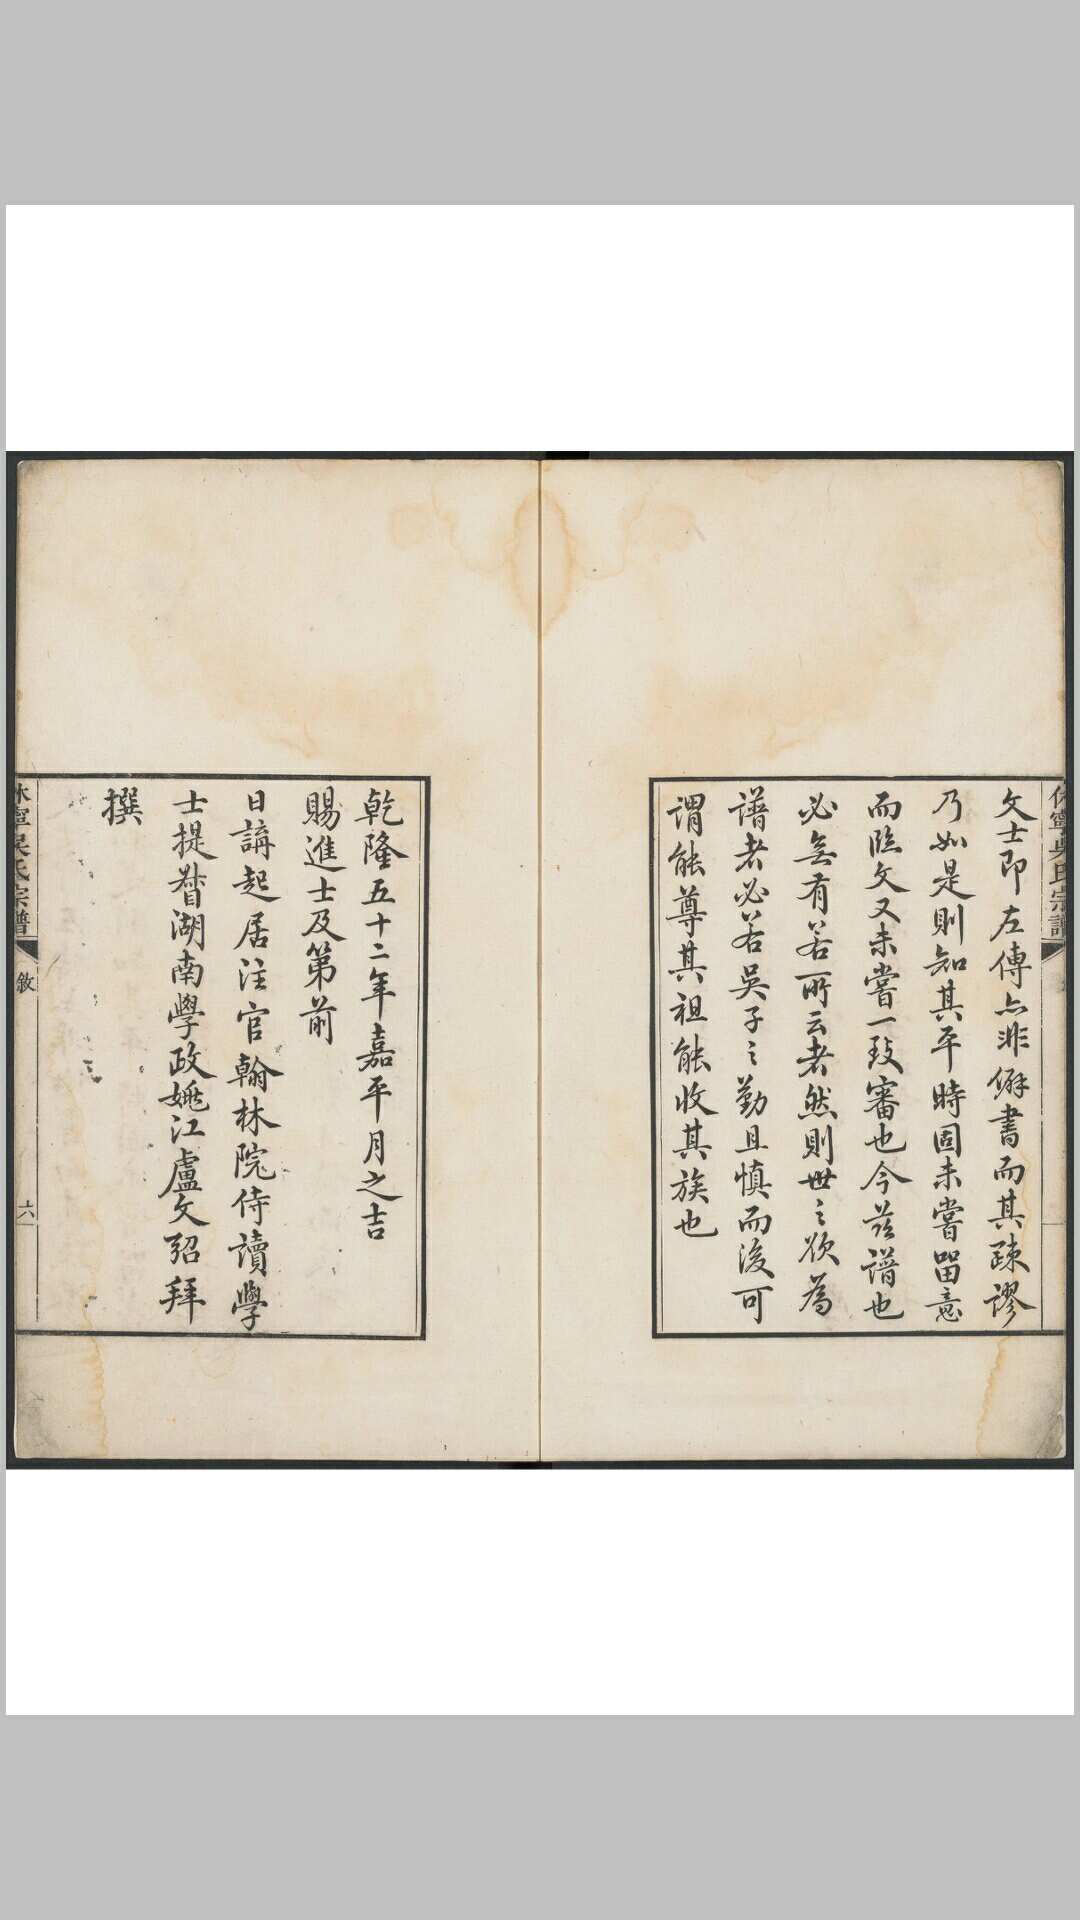 休寧吳氏宗譜
文士即左傳亦非僻書而其疎謬
乃如是則知其平時固未嘗留意
而臨文又未嘗一致審也今茲譜也
必無有若所云者然則世之欲為
譜者必若吳子之勤且慎而後可
謂能尊其祖能收其族也
乾隆五十二年嘉平月之吉
賜進士及第前
日講起居注官翰林院侍讀學
士提督湖南學政姚江盧文弨拜
撰
休寧吳氏宗譜
敘
六